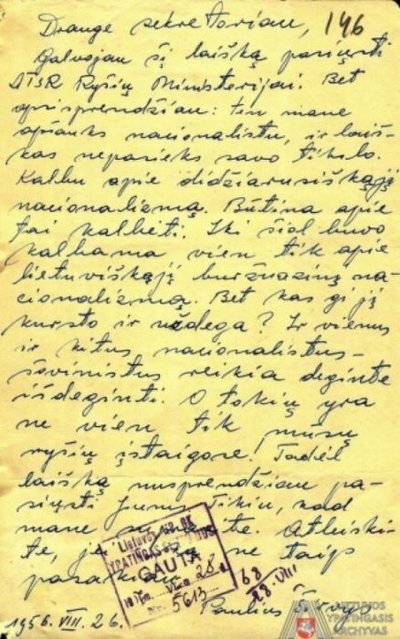 Drauge sekretoriau, 146
Galvojau šį laišką pasiųsti
LTSR Ryšių Ministerijai. Bet
apsisprendžiau: ten mane
apšauks nacionalistu, ir laiš-
kas nepasieks savo tikslo.
Kalbu apie didžiarusiškąjį
nacionalizmą. Būtina apie
tai kalbėti. Iki šiol buvo
kalbama vien tik apie
lietuviškąjį buržuazinį na-
cionalizmą. Bet kas gi jį
kursto ir uždega? Ir vienus
ir kitus nacionalistus-
šovinistus reikia deginte
išdeginti. O tokių yra
ne vien tik mūsų
ryšių įstaigose. Todėl
laišką nusprendžiau pa-
siųsti Jums. Tikiu, kad
mane suprasite. Atleiski-
te, jei ką ne taip
parašiau.
Lietuvos
YPATINGAS
GAUTA
28
Nr. 5613
63
28.VIII
Paulius Širvys
1956.VIII.26.
LIETUVOS
YPATINGASIS
ARCHYVAS